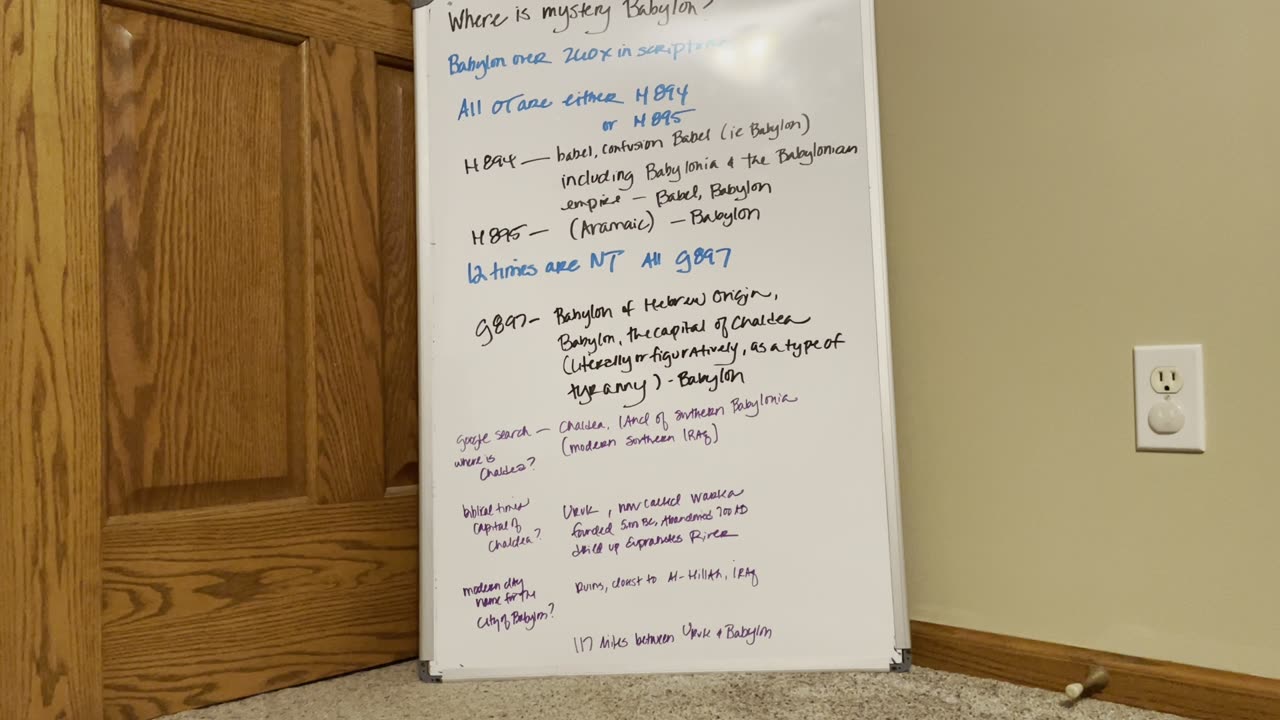 Where is mystery Babylon?
Babylon over 260x in scripture
All OT are either H894
or H895
H894 — babel, confusion Babel (ie Babylon)
including Babylonia & the Babylonian
empire — Babel, Babylon
H895 — (Aramaic) — Babylon
12 times are NT All g897
g897 - Babylon of Hebrew Origin,
Babylon, the capital of Chaldea
(literally or figuratively, as a type of
tyranny) - Babylon
google search — Chaldea, land of southern Babylonia
where is (modern southern IRAq)
Chaldea?
biblical times Uruk, now called Warka
capital of founded 5000 BC, Abandoned 700 AD
Chaldea? dried up Euphrates River
modern day Ruins, closest to Al-Hillah, IRAq
name for the
city of Babylon?
117 Miles between Uruk & Babylon